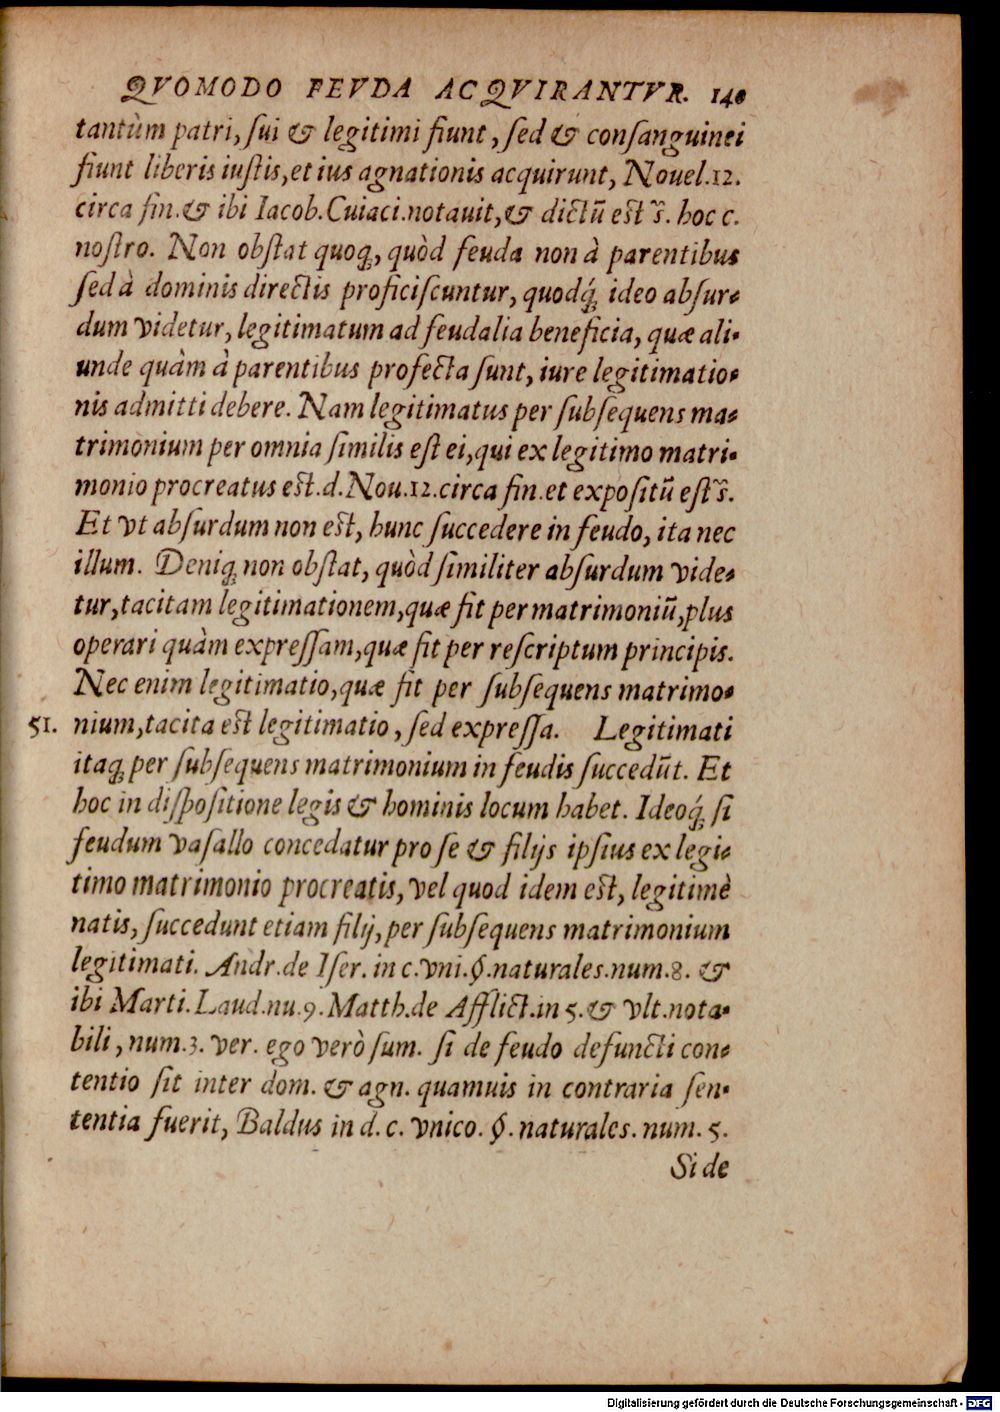 QVOMODO FEVDA ACQVIRANTVR. 140
tantùm patri, ſui & legitimi fiunt, ſed & conſanguinei
fiunt liberis iuſtis, et ius agnationis acquirunt, Nouel. 12.
circa fin. & ibi Iacob. Cuiaci. notauit, & dictũ eſt s̃. hoc c.
noſtro. Non obſtat quoq;, quòd feuda non à parentibus
ſed à dominis directis proficiſcuntur, quodq́; ideo abſur-
dum videtur, legitimatum ad feudalia beneficia, quæ ali-
unde quàm à parentibus profecta ſunt, iure legitimatio-
nis admitti debere. Nam legitimatus per ſubſequens ma-
trimonium per omnia ſimilis eſt ei, qui ex legitimo matri-
monio procreatus eſt. d. Nou. 12. circa fin. et expoſitũ eſt s̃.
Et vt abſurdum non eſt, hunc ſuccedere in feudo, ita nec
illum. Deniq; non obſtat, quòd ſimiliter abſurdum vide-
tur, tacitam legitimationem, quæ fit per matrimoniũ, plus
operari quàm expreſſam, quæ fit per reſcriptum principis.
Nec enim legitimatio, quæ fit per ſubſequens matrimo-
51. nium, tacita eſt legitimatio, ſed expreſſa. Legitimati
itaq; per ſubſequens matrimonium in feudis ſuccedũt. Et
hoc in diſpoſitione legis & hominis locum habet. Ideoq́; ſi
feudum vaſallo concedatur pro ſe & filijs ipſius ex legi-
timo matrimonio procreatis, vel quod idem eſt, legitimè
natis, ſuccedunt etiam filij, per ſubſequens matrimonium
legitimati. Andr. de Iſer. in c. vni. §. naturales. num. 8. &
ibi Marti. Laud. nu. 9. Matth. de Afflict. in 5. & vlt. nota-
bili, num. 3. ver. ego verò ſum. ſi de feudo defuncti con-
tentio ſit inter dom. & agn. quamuis in contraria ſen-
tentia fuerit, Baldus in d. c. vnico. §. naturales. num. 5.
Si de
Digitalisierung gefördert durch die Deutsche Forschungsgemeinschaft - DFG